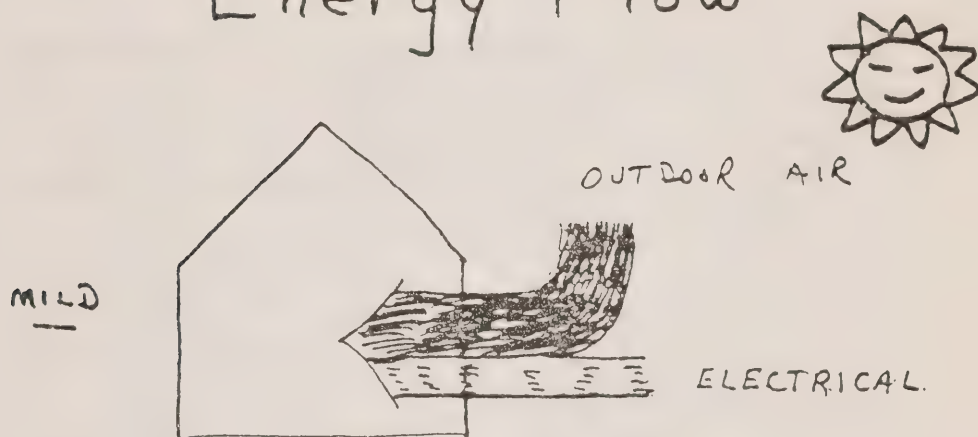 Energy Flow
OUTDOOR AIR
MILD
ELECTRICAL.